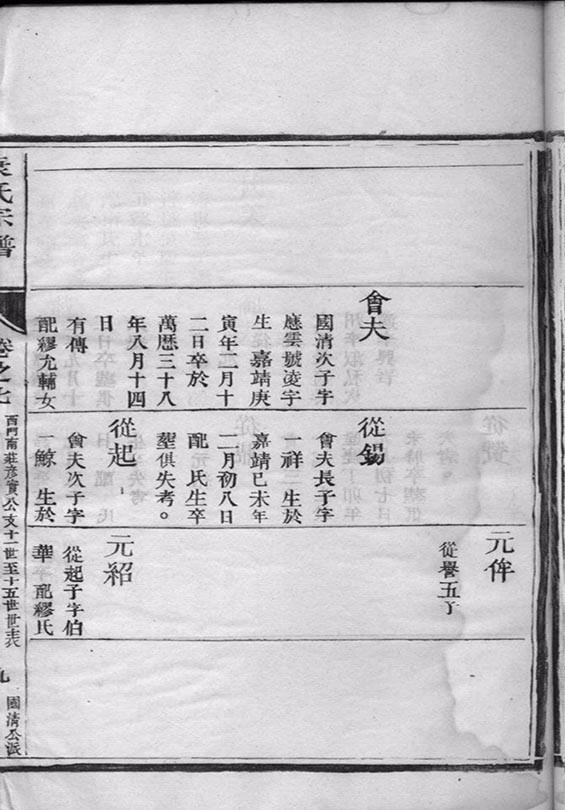 會夫
國清次子字
應雲號淩宇
生嘉靖庚
寅年二月十
二日卒於
萬曆三十八
年八月十四
日
有傳
配繆允輔女
從錫
會夫長子字
一祥 生於
嘉靖己未年
二月初八日
配元氏生卒
塟俱失考。
從起
會夫次子字
鯨 生於
元侔
從譽五子
元紹
從起子字伯
華 配繆氏
袁氏宗譜
卷之七
西門南莊彥實公支十一世至十五世世表
九
國清公派